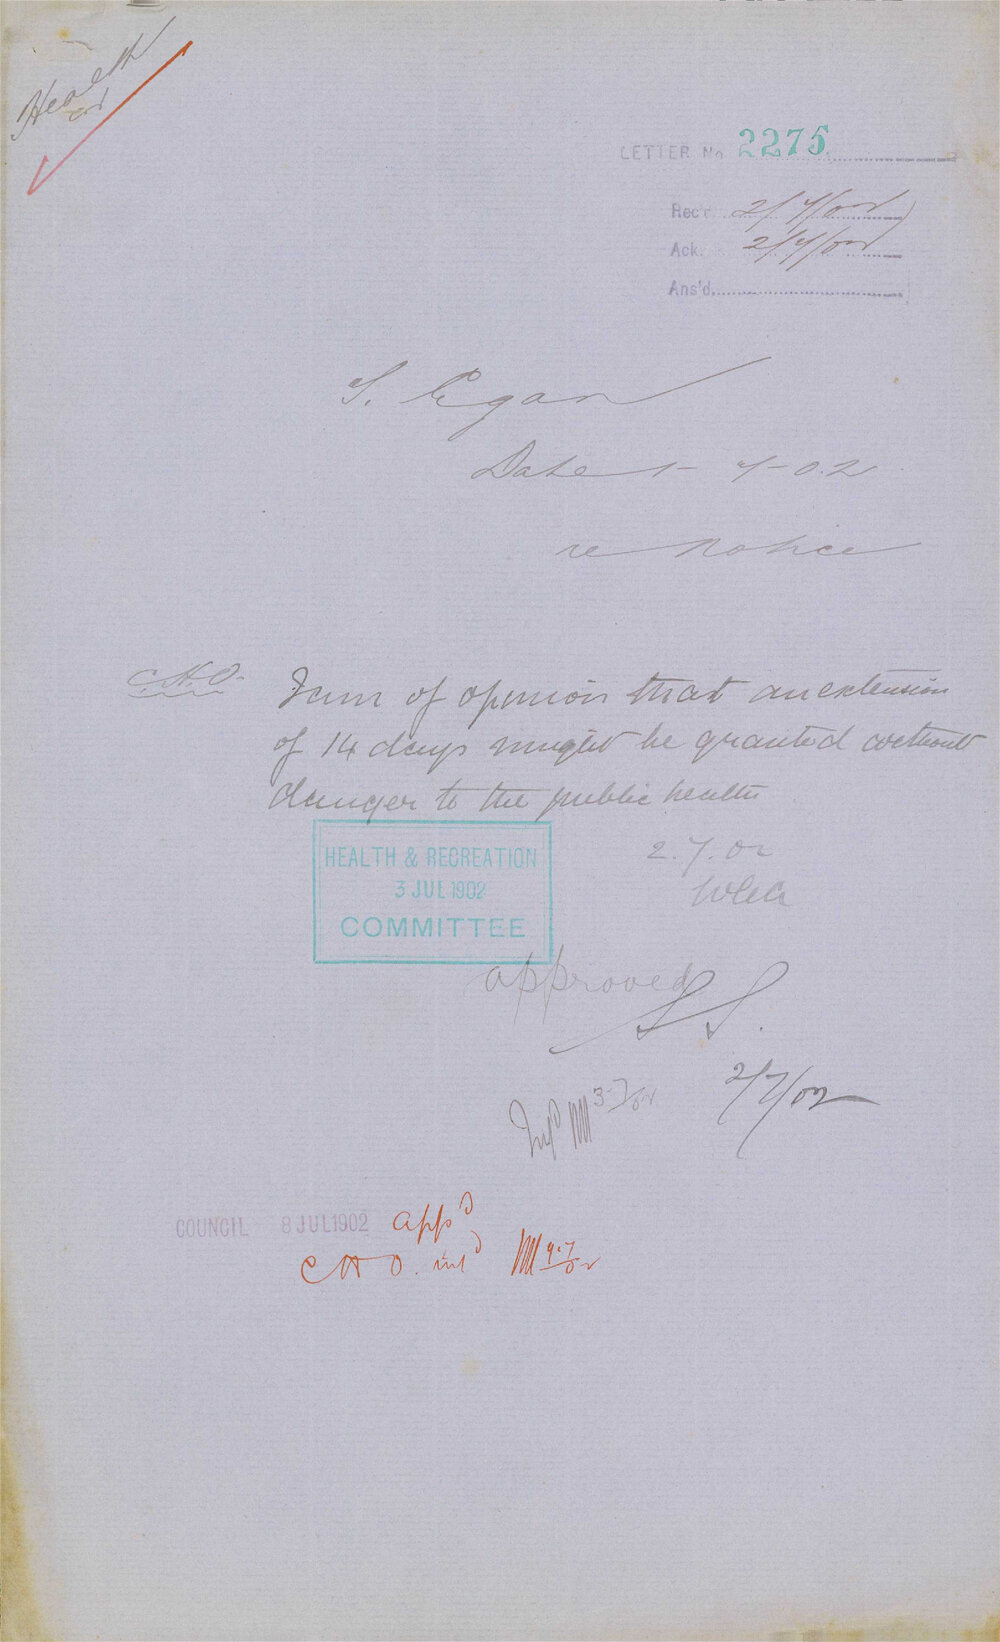 Health
LETTER No 2275
Rec'd 2/7/02
Ack. 2/7/02
Ans'd
T. Egan
Date 1-7-02
re Notice
C.H.O.
I am of opinion that an extension
of 14 days might be granted without
danger to the public health
HEALTH & RECREATION
3 JUL 1902
COMMITTEE
2.7.02
approved
2/7/02
3-7/02
COUNCIL 8 JUL 1902 app'd
C H O